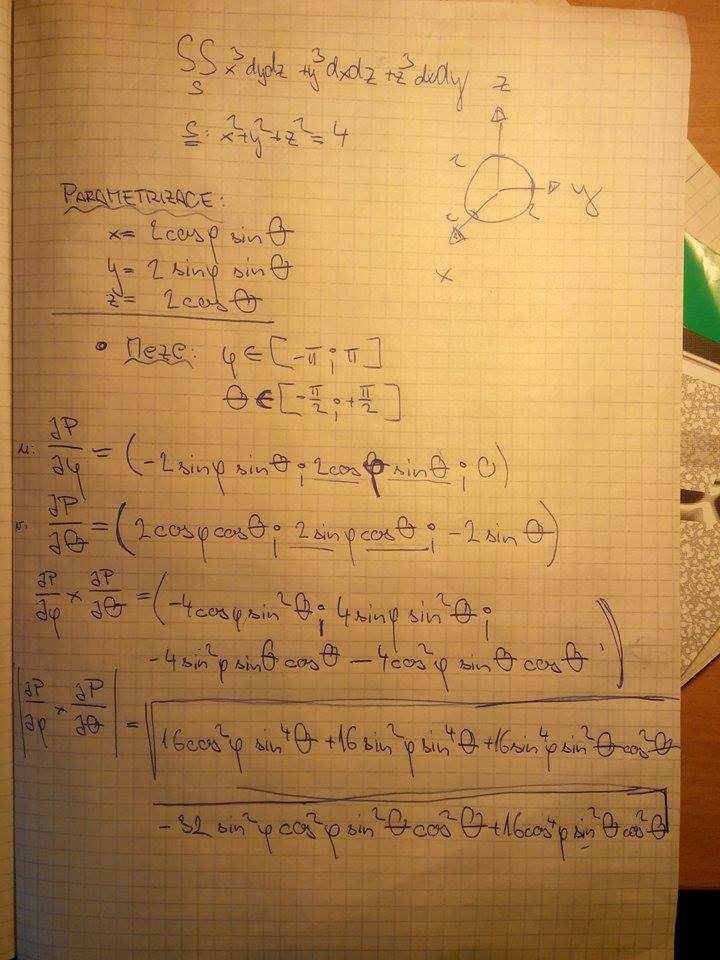 ∬_S x³dydz + y³dxdz + z³dxdy
S: x²+y²+z² = 4
z
2
y
2
2
x
PARAMETRIZACE:
x = 2cosφ sinθ
y = 2 sinφ sinθ
z = 2cosθ
• MEZE: φ ∈ [-π ; π]
θ ∈ [-π/2 ; +π/2]
u: ∂P/∂φ = (-2 sinφ sinθ ; 2cosφ sinθ ; 0)
v: ∂P/∂θ = (2cosφ cosθ ; 2 sinφ cosθ ; -2 sinθ)
∂P/∂φ × ∂P/∂θ = (-4cosφ sin²θ ; 4 sinφ sin²θ ;
-4 sin²φ sinθ cosθ - 4cos²φ sinθ cosθ)
|∂P/∂φ × ∂P/∂θ| = √16cos²φ sin⁴θ + 16 sin²φ sin⁴θ + 16 sin⁴φ sin²θ cos²θ
- 32 sin²φ cos²φ sin²θ cos²θ + 16cos⁴φ sin²θ cos²θ